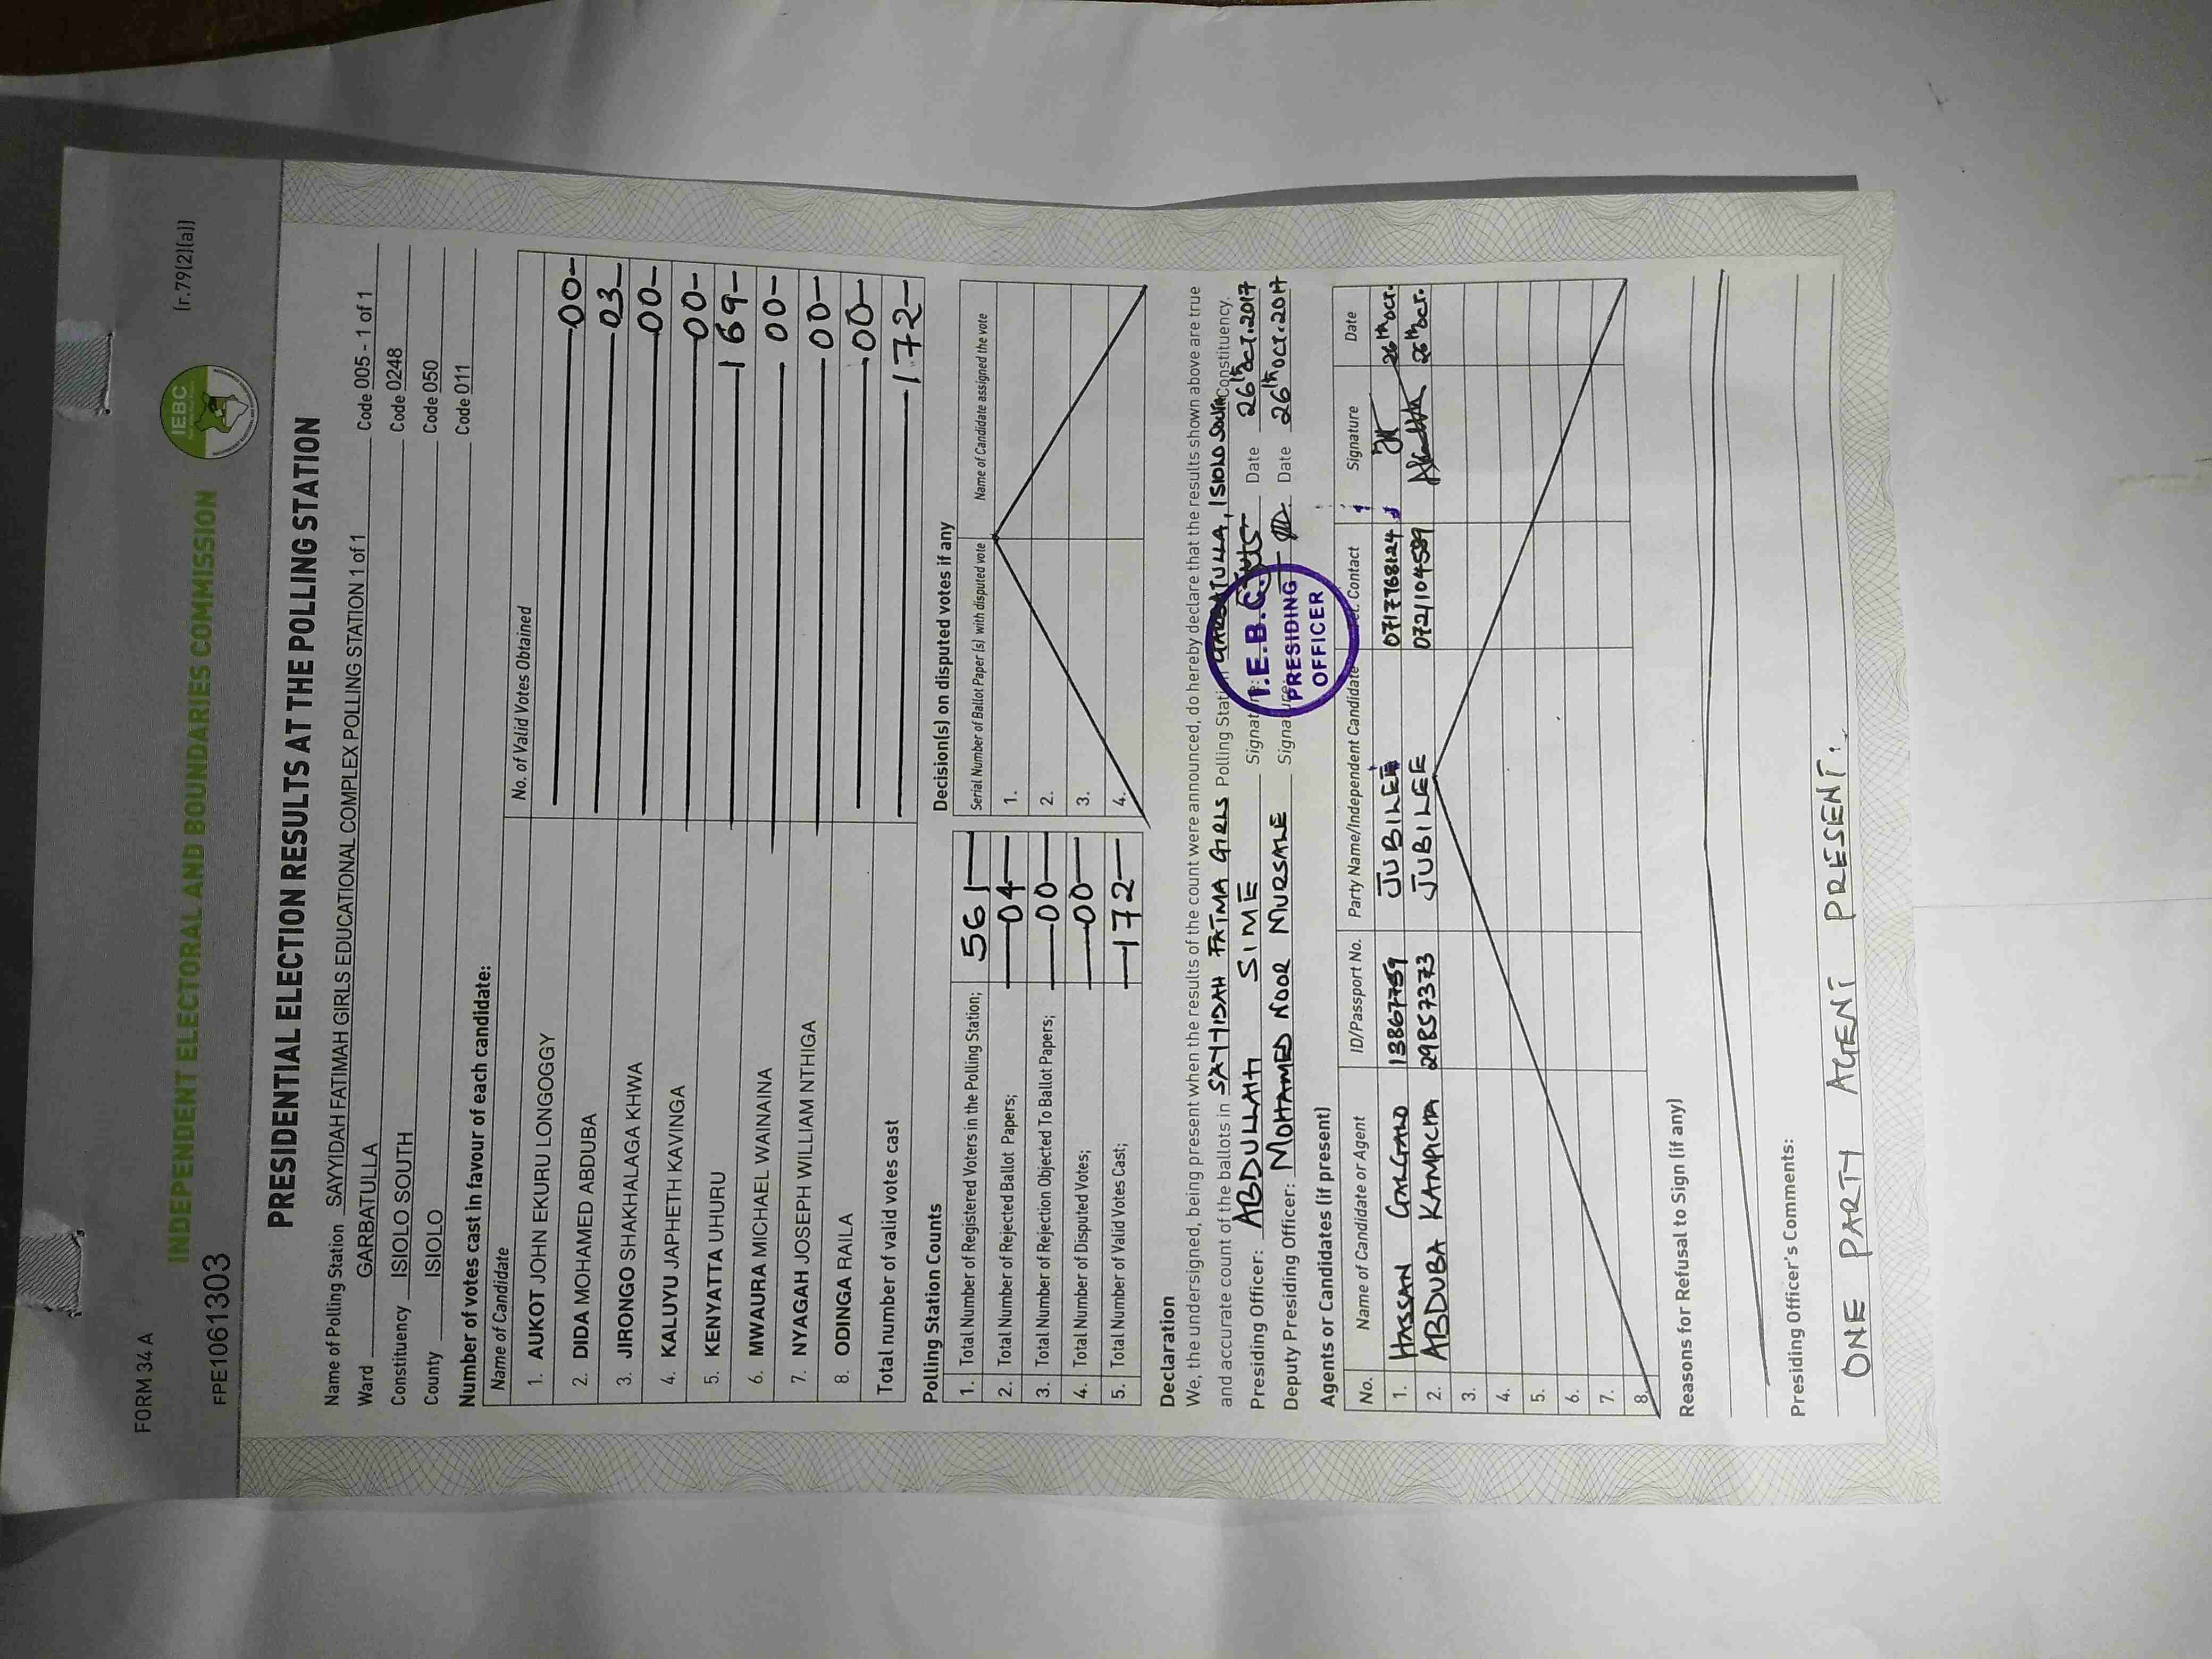 FORM 34 A
(r.79(2)(a))
IEBC
INDEPENDENT ELECTORAL AND BOUNDARIES COMMISSION
FPE1061303
PRESIDENTIAL ELECTION RESULTS AT THE POLLING STATION
Name of Polling Station SAYYIDAH FATIMAH GIRLS EDUCATIONAL COMPLEX POLLING STATION 1 of 1 Code 005 - 1 of 1
Ward GARBATULLA Code 0248
Constituency ISIOLO SOUTH Code 050
County ISIOLO Code 011
Number of votes cast in favour of each candidate:
Name of Candidate No. of Valid Votes Obtained
1. AUKOT JOHN EKURU LONGOGGY 00
2. DIDA MOHAMED ABDUBA 03
3. JIRONGO SHAKHALAGA KHWA 00
4. KALUYU JAPHETH KAVINGA 00
5. KENYATTA UHURU 169
6. MWAURA MICHAEL WAINAINA 00
7. NYAGAH JOSEPH WILLIAM NTHIGA 00
8. ODINGA RAILA 00
Total number of valid votes cast 172
Polling Station Counts
1. Total Number of Registered Voters in the Polling Station; 561
2. Total Number of Rejected Ballot Papers; 04
3. Total Number of Rejection Objected To Ballot Papers; 00
4. Total Number of Disputed Votes; 00
5. Total Number of Valid Votes Cast; 172
Decision(s) on disputed votes if any
Serial Number of Ballot Paper (s) with disputed vote Name of Candidate assigned the vote
1.
2.
3.
4.
Declaration
We, the undersigned, being present when the results of the count were announced, do hereby declare that the results shown above are true
and accurate count of the ballots in SAYYIDAH FATMA GIRLS Polling Station GARBATULLA, ISIOLO SOUTH Constituency.
Presiding Officer: ABDULLAHI SIME Signature: Date 26th OCT. 2017
Deputy Presiding Officer: MOHAMED NOOR MURSALE Signature: Date 26th OCT. 2017
I.E.B.C.
PRESIDING
OFFICER
Agents or Candidates (if present)
No. Name of Candidate or Agent ID/Passport No. Party Name/Independent Candidate Tel. Contact Signature Date
1. HASSAN GALGALO 13867759 JUBILEE 0717768124 26th OCT.
2. ABDUBA KAMPICHA 29857373 JUBILEE 0721104589 26th OCT.
3.
4.
5.
6.
7.
8.
Reasons for Refusal to Sign (if any)
Presiding Officer's Comments:
ONE PARTY AGENT PRESENT.